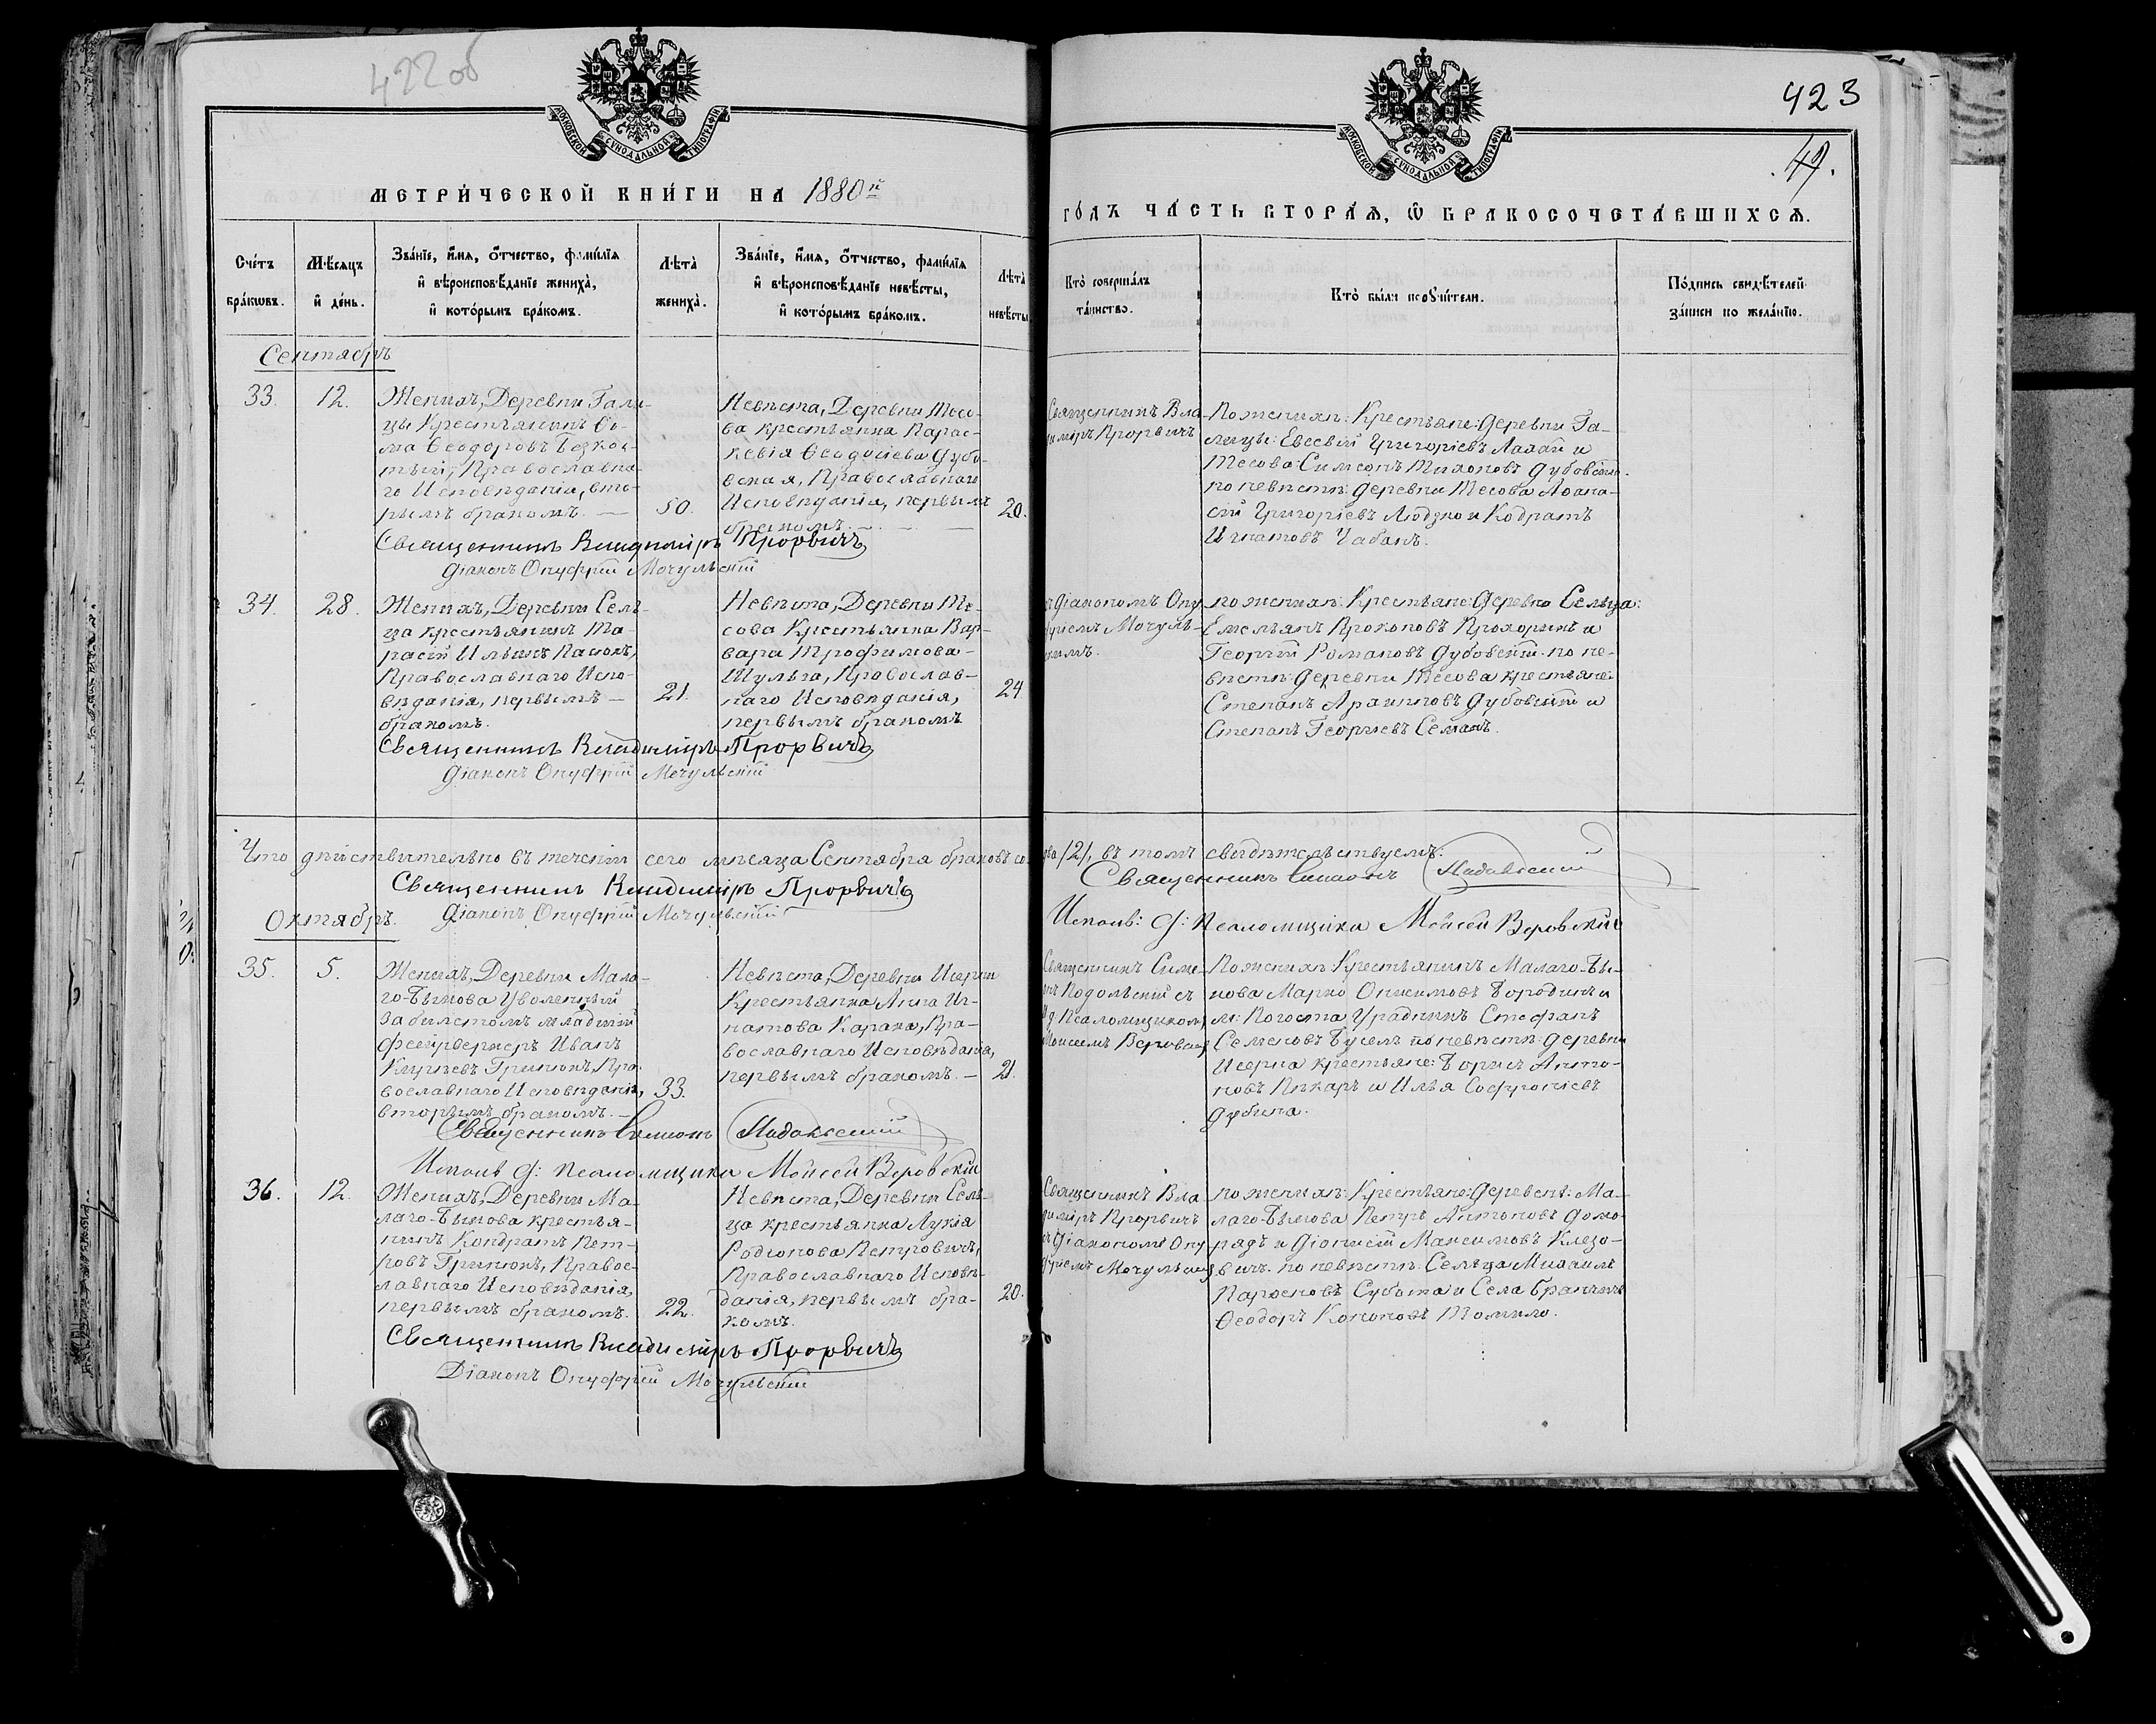 422 об
423
49.
МОСКОВСКОЙ СѴНОДАЛЬНОЙ ТИПОГРАФІИ
МОСКОВСКОЙ СѴНОДАЛЬНОЙ ТИПОГРАФІИ
МЕТРИ́ЧЕСКОЙ КНИ́ГИ НА 1880й
ГО́ДЪ ЧА́СТЬ ВТОРА́Ѧ, Ѽ БРАКОСОЧЕТА́ВШИХСѦ.
Сче́тъ
бра́кѡвъ.
Мѣ́сяцъ
и҆ де́нь.
Зва́нїе, и҆́мя, ѻ҆́тчество, фами́лїя
и҆ вѣроисповѣ́данїе жениха̀,
и҆ кото́рымъ бра́комъ.
Лѣ́та
жениха̀.
Зва́нїе, и҆́мя, ѻ҆́тчество, фами́лїя
и҆ вѣроисповѣ́данїе невѣ́сты,
и҆ кото́рымъ бра́комъ.
Лѣ́та
невѣ́сты
Кто̀ соверша́лъ
та́инство.
Кто̀ бы́ли поручи́тели.
По́дпись свидѣ́телей
за́писи по жела́нїю.
Сентябрь
33.
12.
Женихъ, Деревни Гали-
цы Крестьянинъ Ѳо-
ма Ѳеодоровъ Безкос-
тый, Православна-
го Исповѣданія, вто-
рымъ бракомъ. —
50.
Невѣста, Деревни Тесо-
ва крестьянка Парас-
кевія Ѳеодосіева Дубо-
вская, Православнаго
Исповѣданія, первымъ
бракомъ.
20.
Священникъ Вла-
диміръ Прорвичъ
По женихѣ: Крестьяне: деревни Га-
лицы: Евсевій Григоріевъ Лахай и
Тесова: Симеонъ Тихоновъ Дубовскій.
по невѣстѣ: деревни Тесова Аѳана-
сій Григоріевъ Людзко и Кодратъ
Игнатовъ Чабанъ.
Священникъ Владиміръ Прорвичъ
Діаконъ Онуфрій Мочульскій
34.
28.
Женихъ, Деревни Сель-
ца крестьянинъ Та-
расій Ильинъ Панокъ,
Православнаго Испо-
вѣданія, первымъ —
бракомъ.
21.
Невѣста, Деревни Те-
сова Крестьянка Вар-
вара Трофимова
Шульга, Православ-
наго Исповѣданія,
первымъ бракомъ
24
съ Діакономъ Ону-
фріемъ Мочуль-
скимъ.
по женихѣ: Крестьяне: Деревни Сельца:
Емельянъ Прокоповъ Прохорикъ и
Георгій Романовъ Дубовскій. по не-
вѣстѣ: деревни Тесова крестьяне:
Степанъ Архиповъ Дубовскій и
Степанъ Георгіевъ Семакъ.
Священникъ Владиміръ Прорвичъ
Діаконъ Онуфрій Мочульскій
Что дѣйствительно въ теченіи сего мѣсяца Сентября браковъ со
два /2/, въ томъ свидѣтельствуемъ:
Священникъ Владиміръ Прорвичъ
Священникъ Симеонъ Подольскій
Діаконъ Онуфрій Мочульскій
Исполъ: д: Псаломщика Мойсей Веровскій
Октябрь.
35.
5.
Женихъ, Деревни Мало-
го-Быкова Уволенный
за билетомъ младшій
фейерверкеръ Иванъ
Гринюкъ, Пра-
вославнаго Исповѣданія,
вторымъ бракомъ. —
33.
Невѣста, Деревни Исерни
Крестьянка Анна Иг-
натова Карана, Пра-
вославнаго Исповѣданія,
первымъ бракомъ. —
21.
Священникъ Симе-
онъ Подольскій съ
И д. Псаломщикомъ
Моисеемъ Веровск
По женихѣ Крестьянинъ Малаго-Бы-
кова Марко Онисимовъ Бородичъ и
м: Погоста Урядникъ Стефанъ
Семеновъ Бусель по невѣстѣ: деревни
Исерна крестьяне: Борисъ Анто-
новъ Пикарь и Илья Софроніевъ
Дубина.
Священникъ Симеонъ Подольскій
Исполъ д: псаломщика Мойсей Веровскій
36.
12.
Женихъ, Деревни Ма-
лаго-Быкова крестья-
нинъ Кондратъ Пет-
ровъ Гринюкъ, Правос-
лавнаго Исповѣданія,
первымъ бракомъ.
22.
Невѣста, Деревни Сель-
ца крестьянка Лукія
Родіонова Петровичъ,
Православнаго Исповѣ-
данія, первымъ бра-
комъ.
20.
Священникъ Вла
диміръ Прорвичъ
съ Діакономъ Ону
фріемъ Мочульски
по женихѣ: Крестьяне: деревень: Ма-
лаго-Быкова Петръ Антоновъ Домо-
радъ и Діонисій Максимовъ Клезо-
вичъ. по невѣстѣ: Сельца Михаилъ
Парѳеновъ Субота и Села Браничъ
Ѳеодоръ Кононовъ Томило.
Священникъ Владиміръ Прорвичъ
Діаконъ Онуфрій Мочульскій